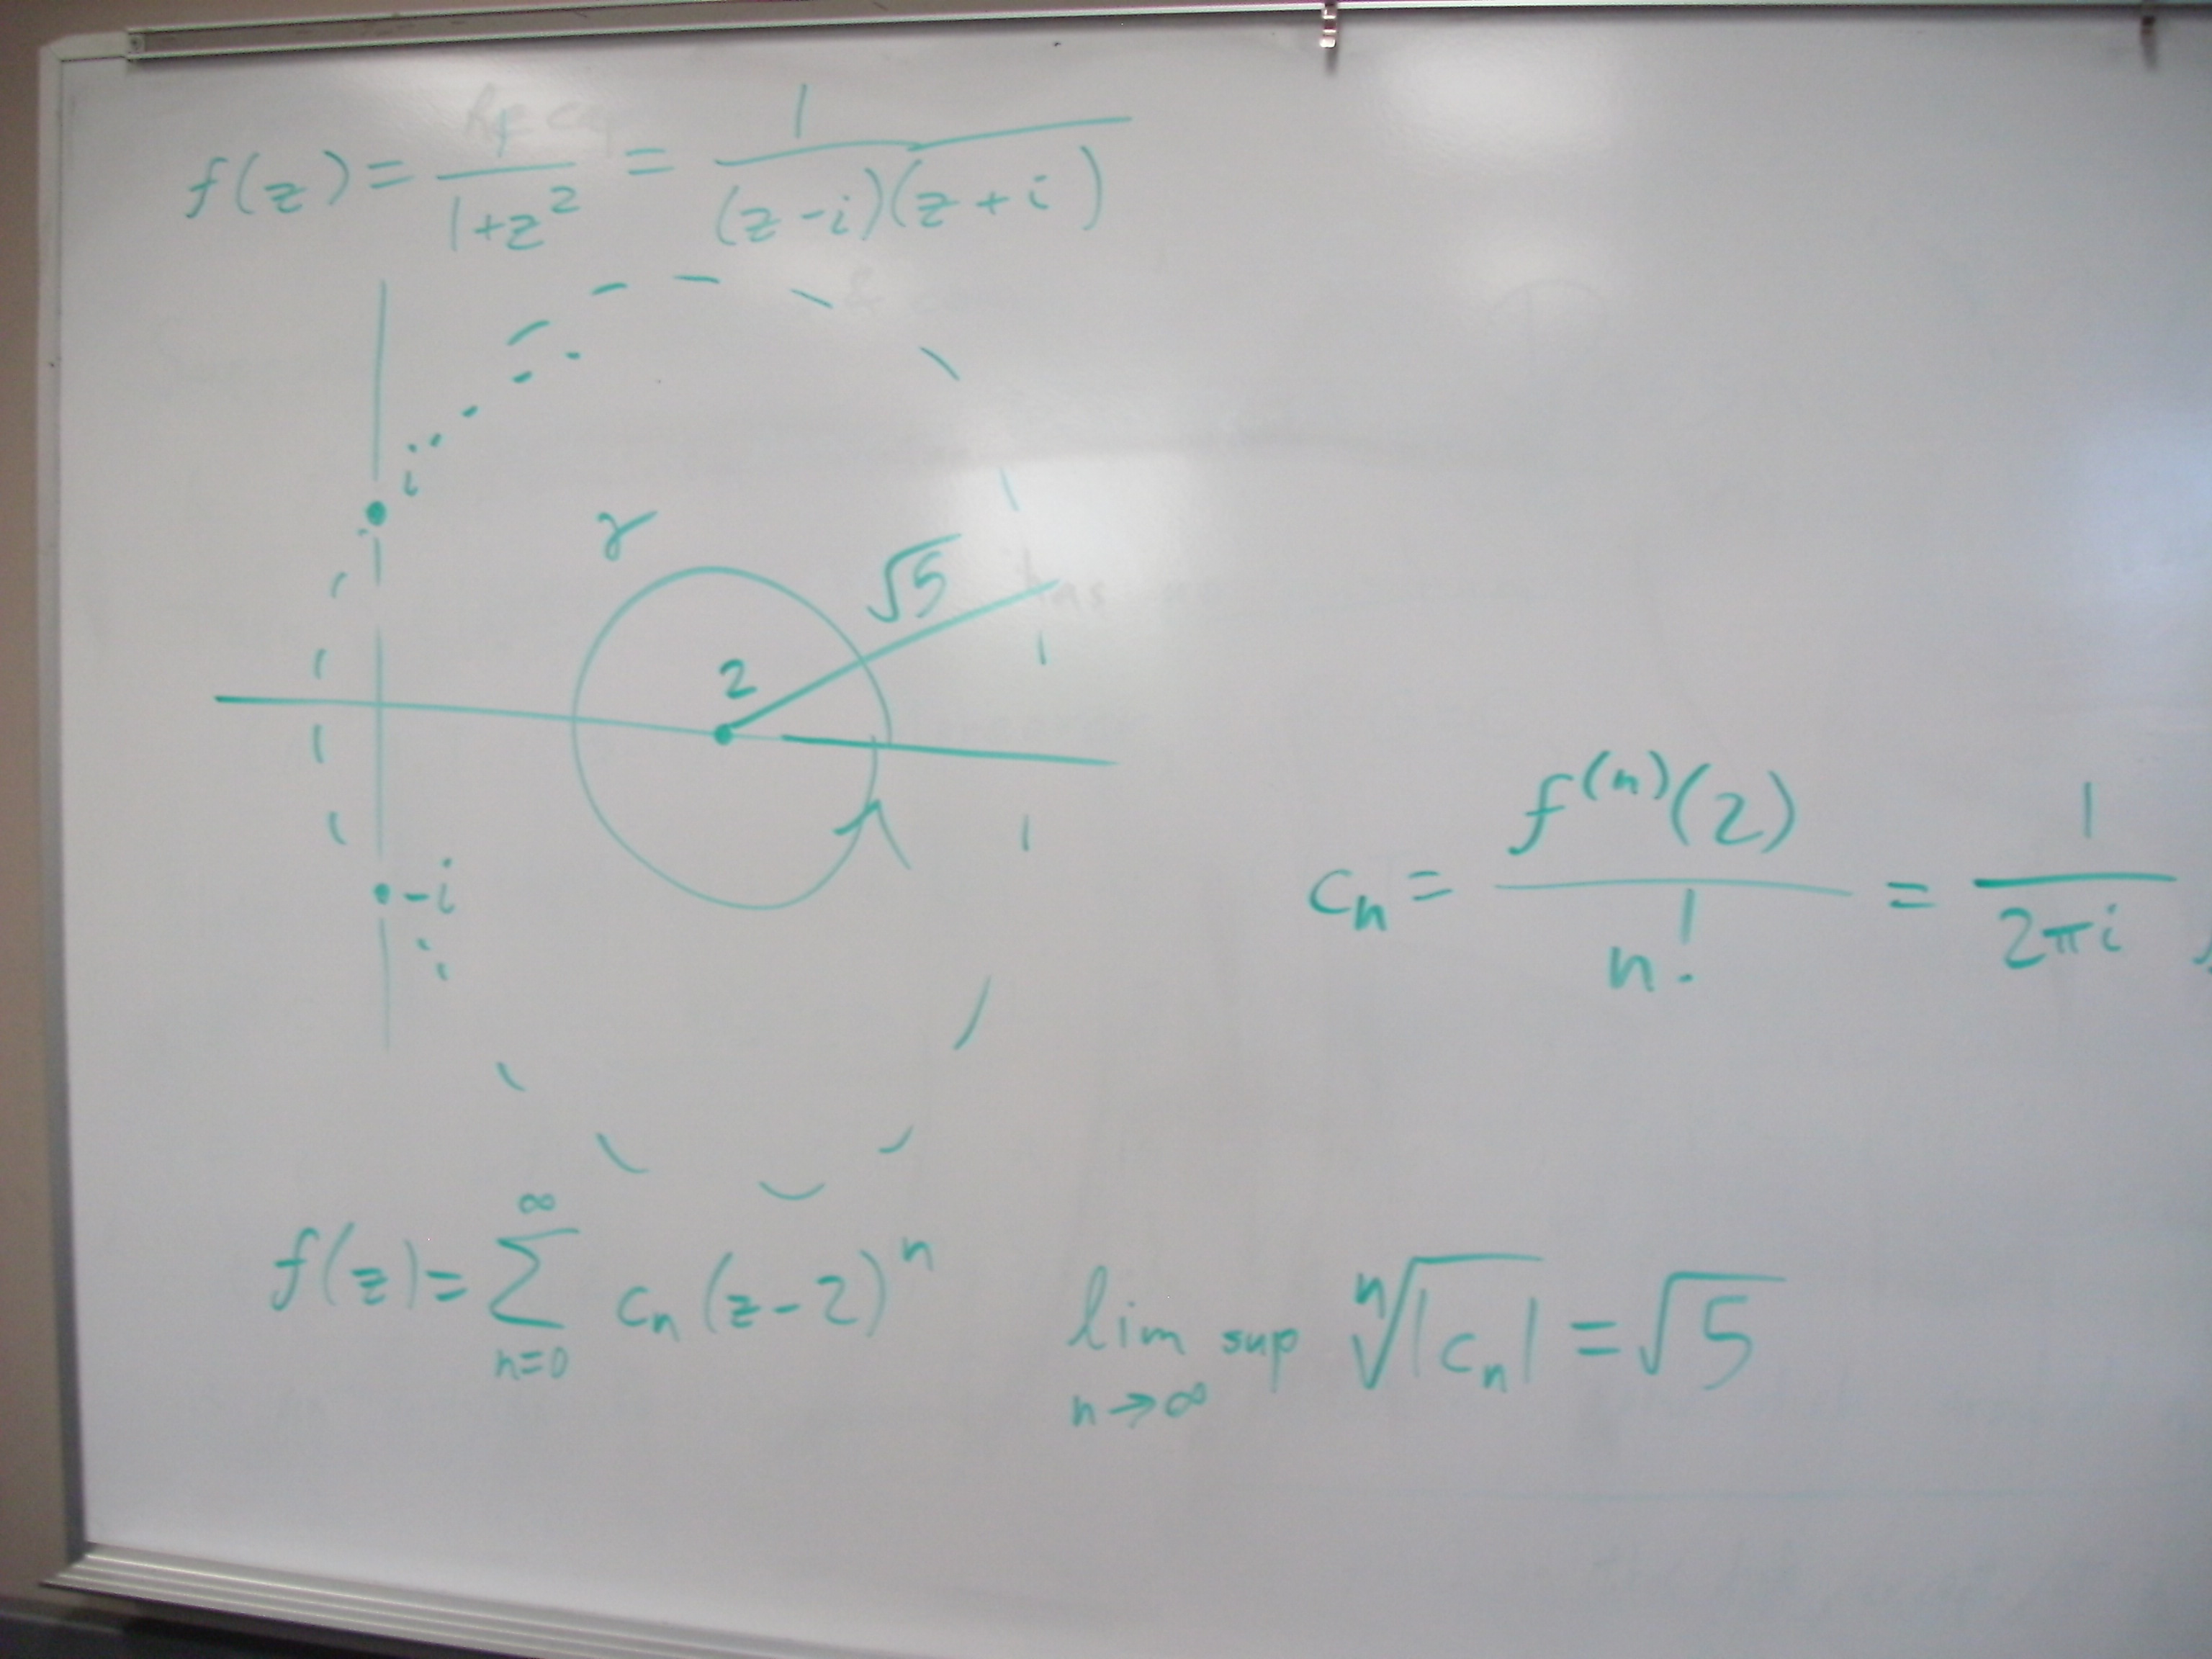 f(z) = 1/(1+z²) = 1/((z-i)(z+i))
i
γ
√5
2
-i
cₙ = f⁽ⁿ⁾(2)/n! = 1/(2πi)
f(z) = ∑_{n=0}^{∞} cₙ(z-2)ⁿ
lim sup_{n→∞} ⁿ√|cₙ| = √5